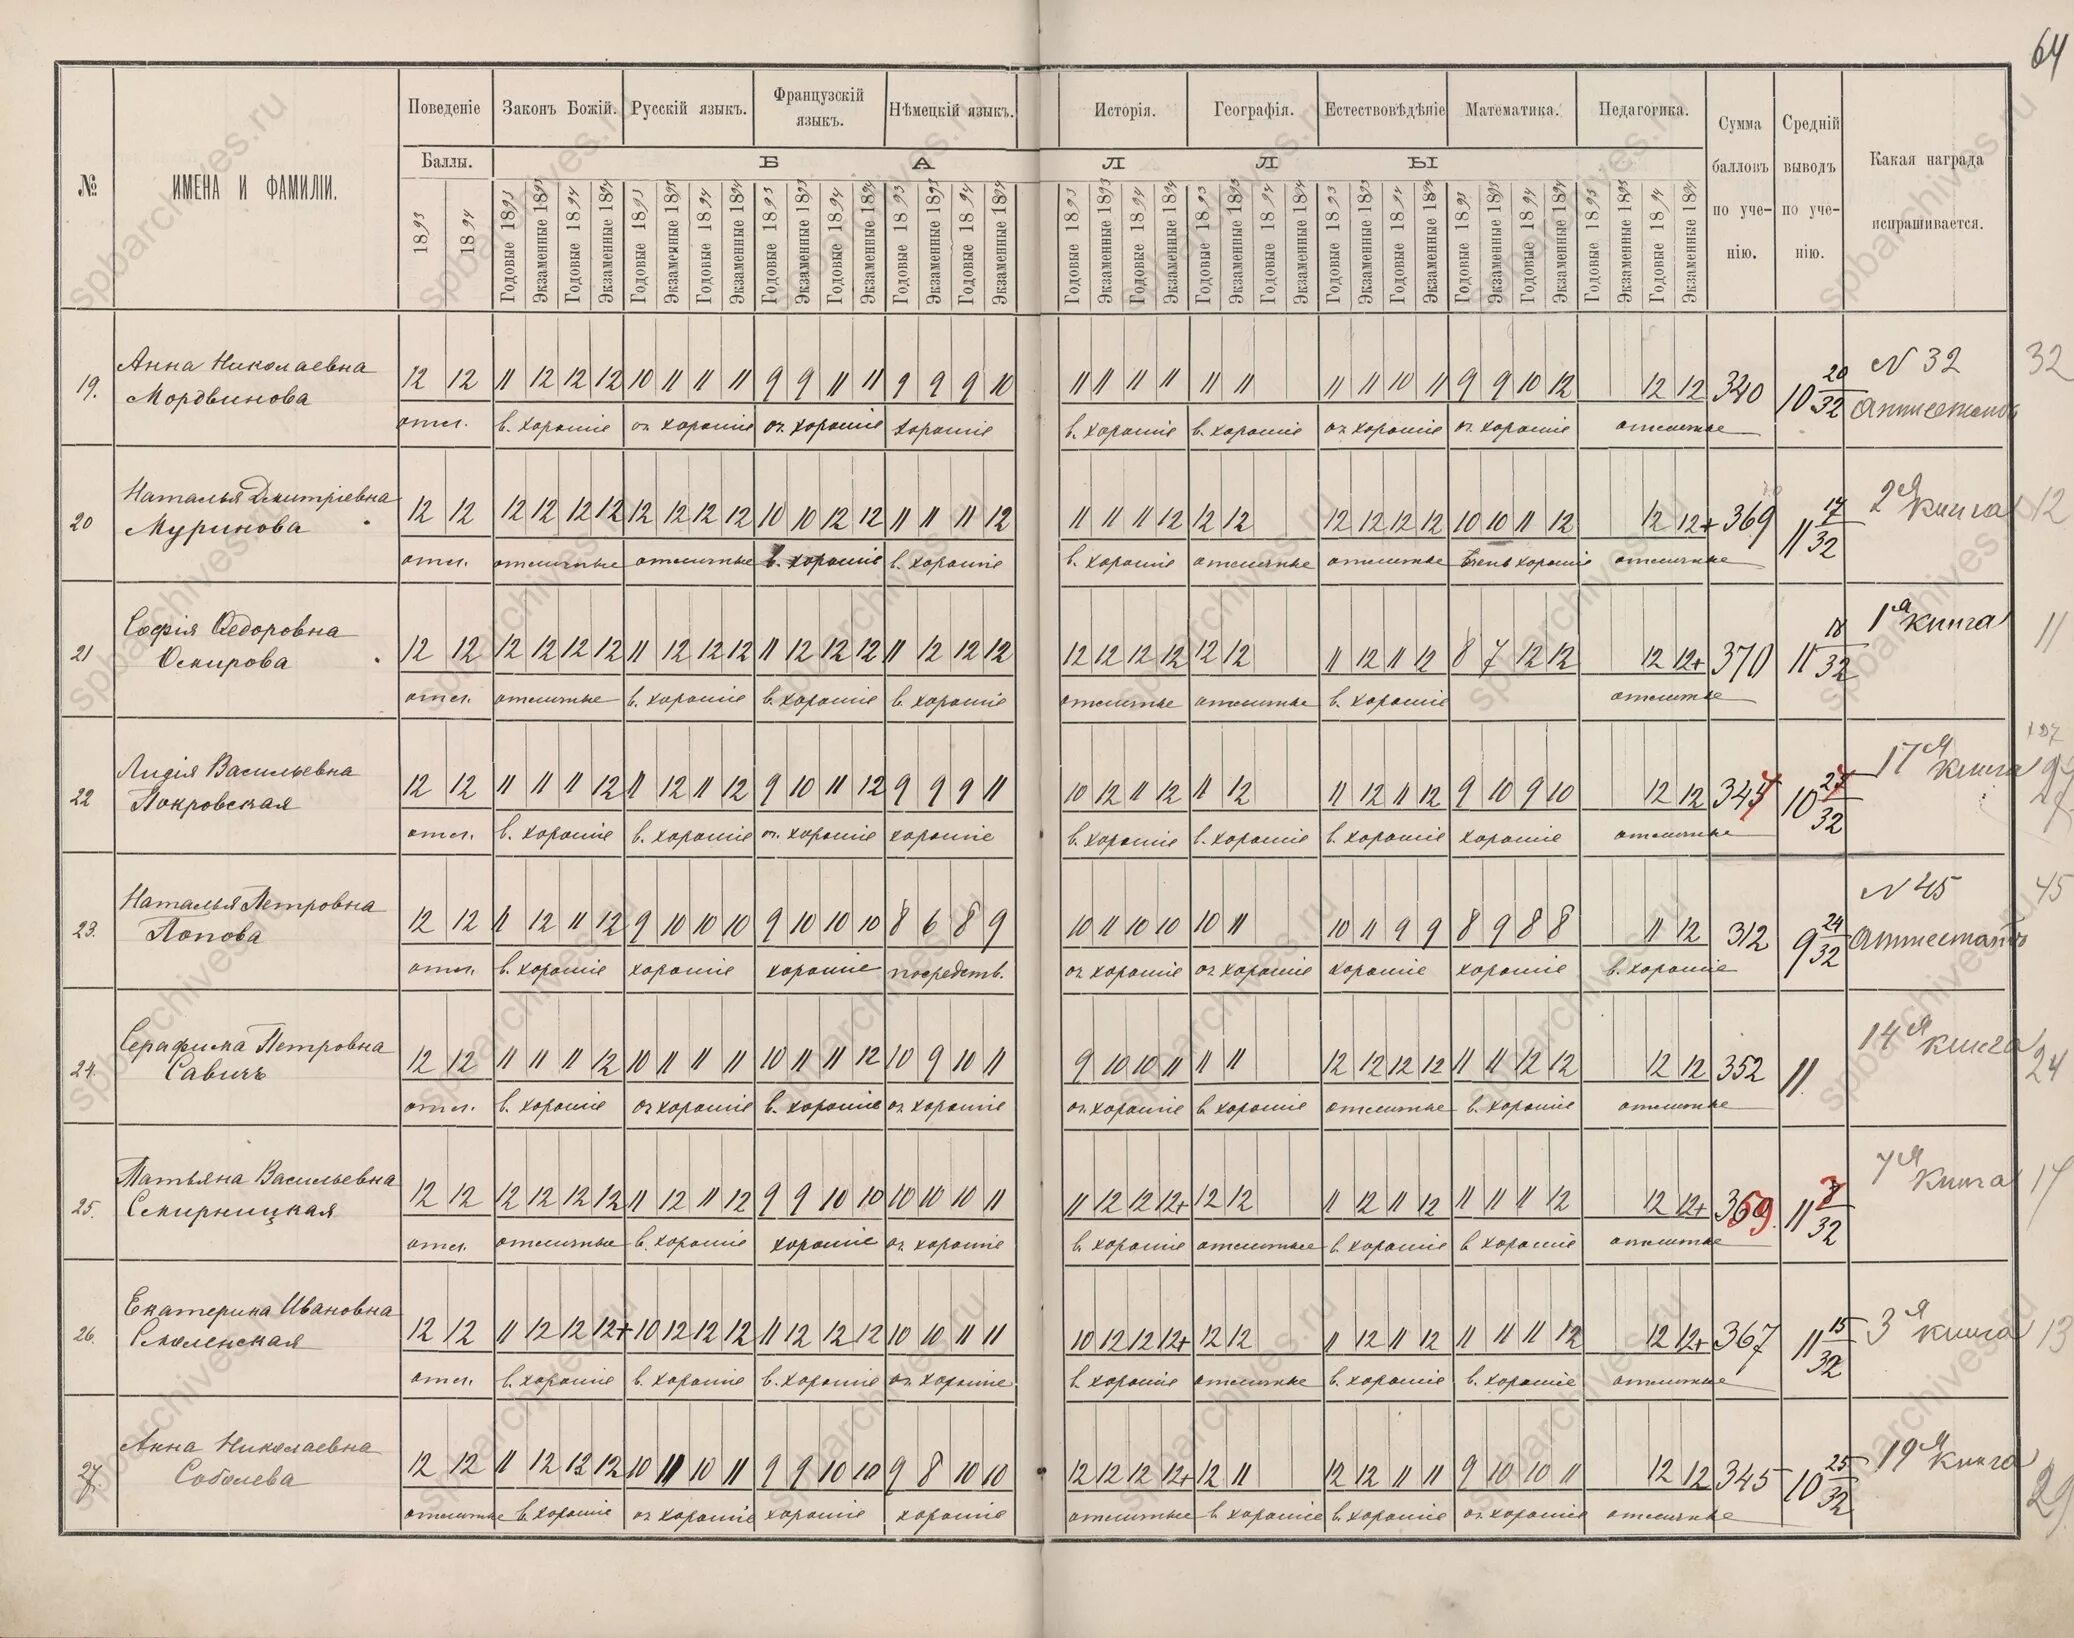 64
№
ИМЕНА И ФАМИЛІИ.
Поведеніе
Законъ Божій.
Русскій языкъ.
Французскій
языкъ.
Нѣмецкій языкъ.
Исторія.
Географія.
Естествовѣдѣніе
Математика.
Педагогика.
Сумма
балловъ
по уче-
нію.
Средній
выводъ
по уче-
нію.
Какая награда
испрашивается.
Баллы.
Б А Л Л Ы
1893 1894
Годовые 1893 Экзаменные 1893 Годовые 1894 Экзаменные 1894
Годовые 1893 Экзаменные 1893 Годовые 1894 Экзаменные 1894
Годовые 1893 Экзаменные 1893 Годовые 1894 Экзаменные 1894
Годовые 1893 Экзаменные 1893 Годовые 1894 Экзаменные 1894
Годовые 1893 Экзаменные 1893 Годовые 1894 Экзаменные 1894
Годовые 1893 Экзаменные 1893 Годовые 1894 Экзаменные 1894
Годовые 1893 Экзаменные 1893 Годовые 1894 Экзаменные 1894
Годовые 1893 Экзаменные 1893 Годовые 1894 Экзаменные 1894
Годовые 1893 Экзаменные 1893 Годовые 1894 Экзаменные 1894
19. Анна Николаевна
Мордвинова
12 12 11 12 12 12 10 11 11 11 9 9 11 11 9 9 9 10 11 11 11 11 11 11 11 11 10 11 9 9 10 12 12 12 340 10 20/32 N 32 32
Аттестатъ
отл. в. хорошіе оч. хорошіе оч. хорошіе хорошіе в. хорошіе в. хорошіе оч. хорошіе оч. хорошіе отличные
20 Наталья Дмитріевна
Муринова
12 12 12 12 12 12 12 12 12 12 10 10 12 12 11 11 11 12 11 11 11 12 12 12 12 12 12 12 10 10 11 12 12 12+ 369 11 17/32 2я книга 12
отл. отличные отличные в. хорошіе в. хорошіе в. хорошіе отличные отличные Очень хорошіе отличные
21 Софія Ѳедоровна
Оскирова
12 12 12 12 12 12 11 12 12 12 11 12 12 12 11 12 12 12 12 12 12 12 12 12 11 12 11 12 8 7 12 12 12 12+ 370 11 18/32 1я книга 11
отл. отличные в. хорошіе в. хорошіе в. хорошіе отличные отличные в. хорошіе отличные
22 Лидія Васильевна
Покровская
12 12 11 11 11 12 11 12 11 12 9 10 11 12 9 9 9 11 10 12 11 12 11 12 11 12 11 12 9 10 9 10 12 12 347 10 27/32 17я книга
отл. в. хорошіе в. хорошіе оч. хорошіе хорошіе в. хорошіе в. хорошіе в. хорошіе хорошіе отличные
23. Наталья Петровна
Попова
12 12 11 12 11 12 9 10 10 10 9 10 10 10 8 6 8 9 10 11 10 10 10 11 10 11 9 9 8 9 8 8 11 12 312 9 24/32 N 45 45
Аттестатъ
отл. в. хорошіе хорошіе хорошіе посредств. оч. хорошіе оч. хорошіе хорошіе хорошіе в. хорошіе
24. Серафима Петровна
Савичъ
12 12 11 11 11 12 10 11 11 11 10 11 11 12 10 9 10 11 9 10 10 11 11 11 12 12 12 12 11 11 12 12 12 12 352 11. 14я книга 24
отл. в. хорошіе оч. хорошіе в. хорошіе оч. хорошіе оч. хорошіе в. хорошіе отличные в. хорошіе отличные
25. Татьяна Васильевна
Смирницкая
12 12 12 12 12 12 11 12 11 12 9 9 10 10 10 10 10 11 11 12 12 12+ 12 12 11 12 11 12 11 11 11 12 12 12+ 359. 11 7/32 7я книга 17
отл. отличные в. хорошіе хорошіе оч. хорошіе в. хорошіе отличные в. хорошіе в. хорошіе отличные
26. Екатерина Ивановна
Смоленская
12 12 11 12 12 12+ 10 12 12 12 11 12 12 12 10 10 11 11 10 12 12 12+ 12 12 11 12 11 12 11 11 11 12 12 12+ 367 11 15/32 3я книга 13
отл. в. хорошіе в. хорошіе в. хорошіе оч. хорошіе в. хорошіе отличные в. хорошіе в. хорошіе отличные
27. Анна Николаевна
Соболева
12 12 11 12 12 12 10 11 10 11 9 9 10 10 9 8 10 10 12 12 12 12+ 12 11 12 12 11 11 9 10 10 11 12 12 345 10 25/32 19я книга 29
отличные в. хорошіе оч. хорошіе хорошіе хорошіе отличные в. хорошіе в. хорошіе оч. хорошіе отличные
spbarchives.ru